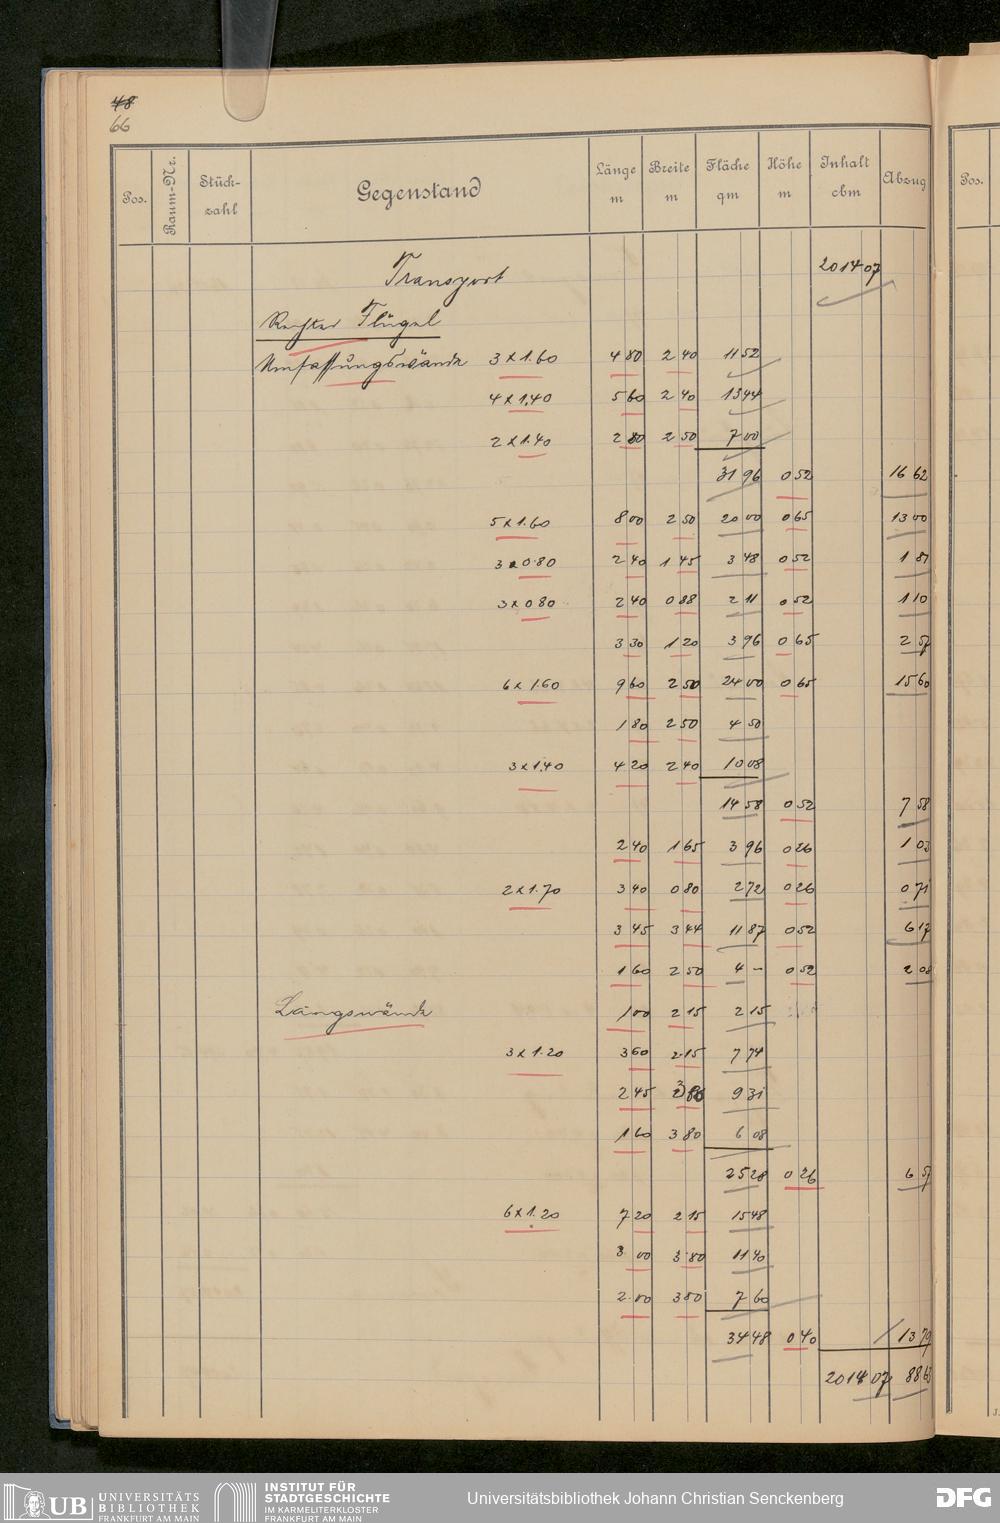 48
66
Pos. Raum-Nr. Stück-zahl Gegenstand Länge m Breite m Fläche qm Höhe m Inhalt cbm Abzug Pos.
Transport 2014 07
Rechter Flügel
Umfassungswände 3 x 1.60 4 80 2 40 11 52
4 x 1.40 5 60 2 40 13 44
2 x 1.40 2 80 2 50 7 00
31 96 0 52 16 62
5 x 1.60 8 00 2 50 20 00 0 65 13 00
3 x 0.80 2 40 1 45 3 48 0 52 1 81
3 x 0 80 2 40 0 88 2 11 0 52 1 10
3 30 1 20 3 96 0 65 2 57
6 x 1.60 9 60 2 50 24 00 0 65 15 60
1 80 2 50 4 50
3 x 1.40 4 20 2 40 10 08
14 58 0 52 7 58
2 40 1 65 3 96 0 26 1 03
2 x 1.70 3 40 0 80 2 72 0 26 0 71
3 45 3 44 11 87 0 52 6 17
1 60 2 50 4 – 0 52 2 08
Längswände 1 00 2 15 2 15
3 x 1.20 3 60 2 15 7 74
2 45 3 80 9 31
1 60 3 80 6 08
25 28 0 26 6 57
6 x 1.20 7 20 2 15 15 48
3 00 3 80 11 40
2 00 3 80 7 60
34 48 0 40 13 79
2014 07 88 63
UB UNIVERSITÄTS BIBLIOTHEK FRANKFURT AM MAIN
INSTITUT FÜR STADTGESCHICHTE IM KARMELITERKLOSTER FRANKFURT AM MAIN
Universitätsbibliothek Johann Christian Senckenberg
DFG